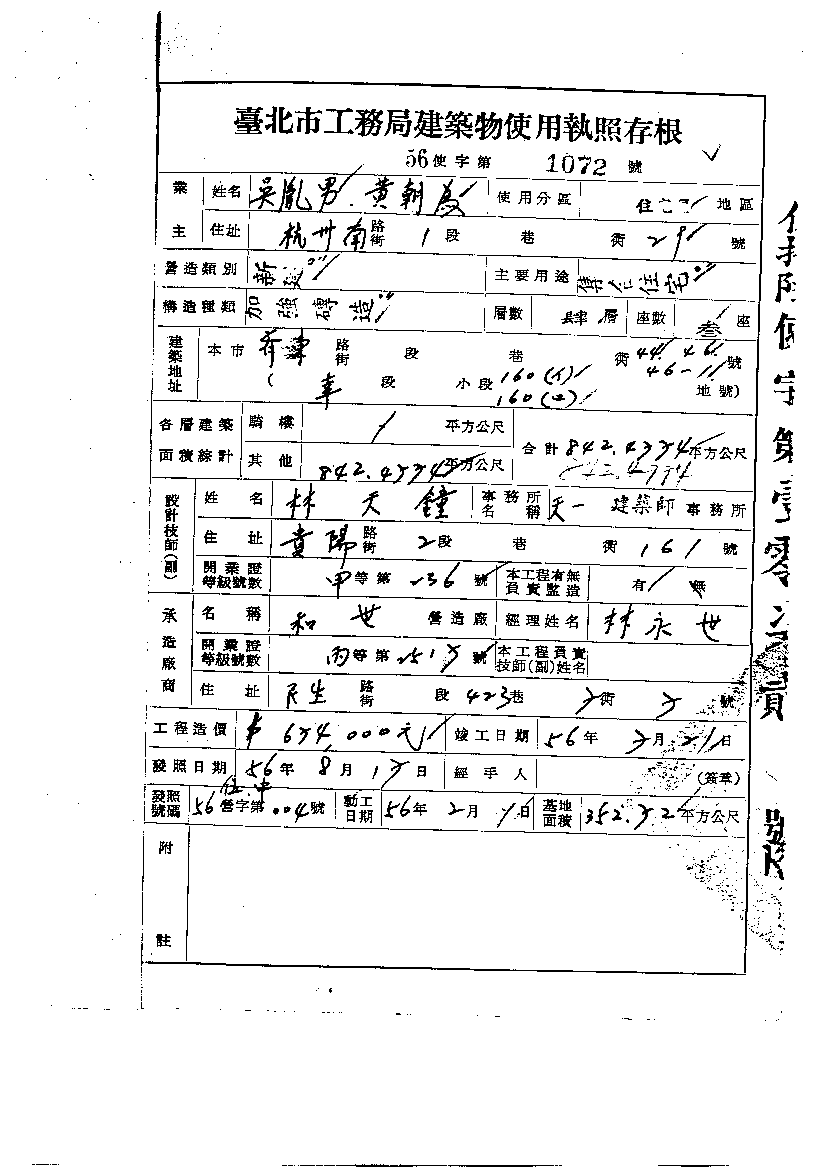 臺北市工務局建築物使用執照存根
56使字第 1072 號
業主 姓名 吳胤男 黃朝為 使用分區 住 地區
住址 杭州南 路街 1 段 巷 衖 29 號
營造類別 新建 主要用途 集合住宅
構造種類 加強磚造 層數 肆層 座數 叁座
建築地址 本市 齊東 路街 段 巷 衖 44. 46. 46-11 號
( 幸 段 小段 160(1) 160(2) 地號)
各層建築面積綜計 騎樓 / 平方公尺 合計 842.4774 平方公尺
其他 842.4774 平方公尺 842.4774
設計技師(副) 姓名 林天鐘 事務所名稱 天一 建築師事務所
住址 貴陽 路街 2段 巷 衖 161 號
開業證等級號數 甲等第 236 號 本工程有無負責監造 有 無
承造廠商 名稱 和世 營造廠 經理姓名 林永世
開業證等級號數 丙等第 號 本工程負責技師(副)姓名
住址 民生 路街 段 423巷 7衖 7 號
工程造價 $674,000元 竣工日期 56年7月21日
發照日期 56年8月17日 經手人 (簽章)
發照號碼 56營字第004號 動工日期 56年2月1日 基地面積 352.72 平方公尺
附註